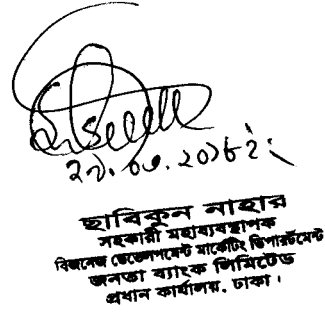 ২৯.০৩.২০১৮ইং
ছাবিকুন নাহার
সহকারী মহাব্যবস্থাপক
বিজনেজ ডেভেলপমেন্ট মার্কেটিং ডিপার্টমেন্ট
জনতা ব্যাংক লিমিটেড
প্রধান কার্যালয়, ঢাকা।